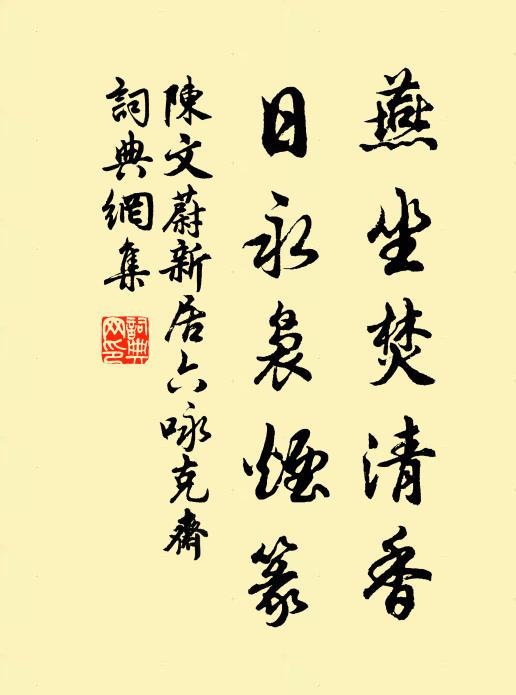 燕坐焚清香
日永裊煙篆
陳文蔚新居六咏克齋
詞典網集
詞典网印